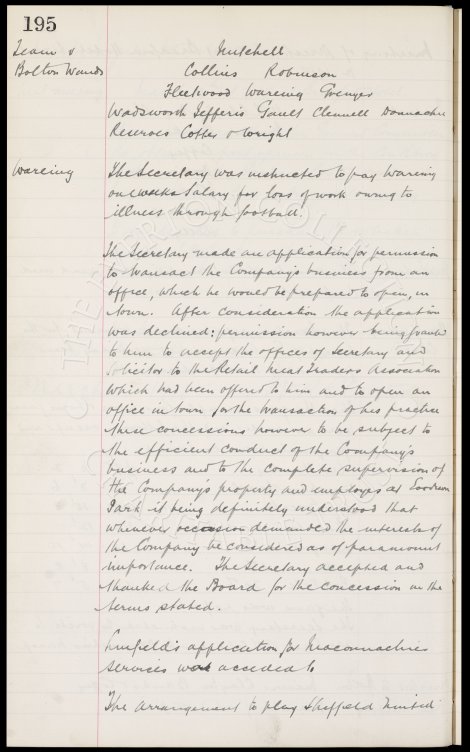 195
Team v Mitchell
Bolton Wands Collins Robinson
Fleetwood Wareing Grenyer
Wadsworth Jefferis Gault Clennell Donnachie
Reserves Coffey & Wright
Wareing The Secretary was instructed to pay Wareing
one weeks Salary for loss of work owing to
illness through football.
The Secretary made an application for permission
to transact the Company's business from an
office, which he would be prepared to open, in
town. After consideration the application
was declined: permission however being granted
to him to accept the offices of Secretary and
Solicitor to the Retail Meat Traders Association
which had been offered to him and to open an
office in town for the transaction of his practice
these concessions however to be subject to
the efficient conduct of the Company's
business and to the complete supervision of
the Company's property and employes at Goodison
Park it being definitely understood that
whenever occasion demanded the interests of
the Company be considered as of paramount
importance. The Secretary accepted and
thanked the Board for the concession on the
terms stated.
Linfield's application for Maconnachies
services was acceded to
The arrangement to play Sheffield United